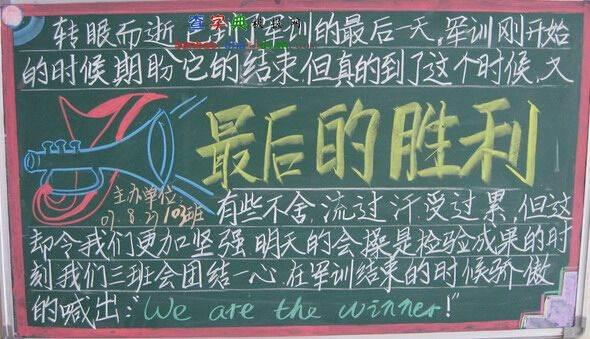 查字典
转眼而逝已到了军训的最后一天,军训刚开始
的时候期盼它的结束但真的到了这个时候,又
最后的胜利
主办单位:
07.8.27 103班
有些不舍,流过汗,受过累,但这
却令我们更加坚强 明天的会操是检验成果的时
刻我们三班会团结一心 在军训结束的时候骄傲
的喊出:“We are the winner!”